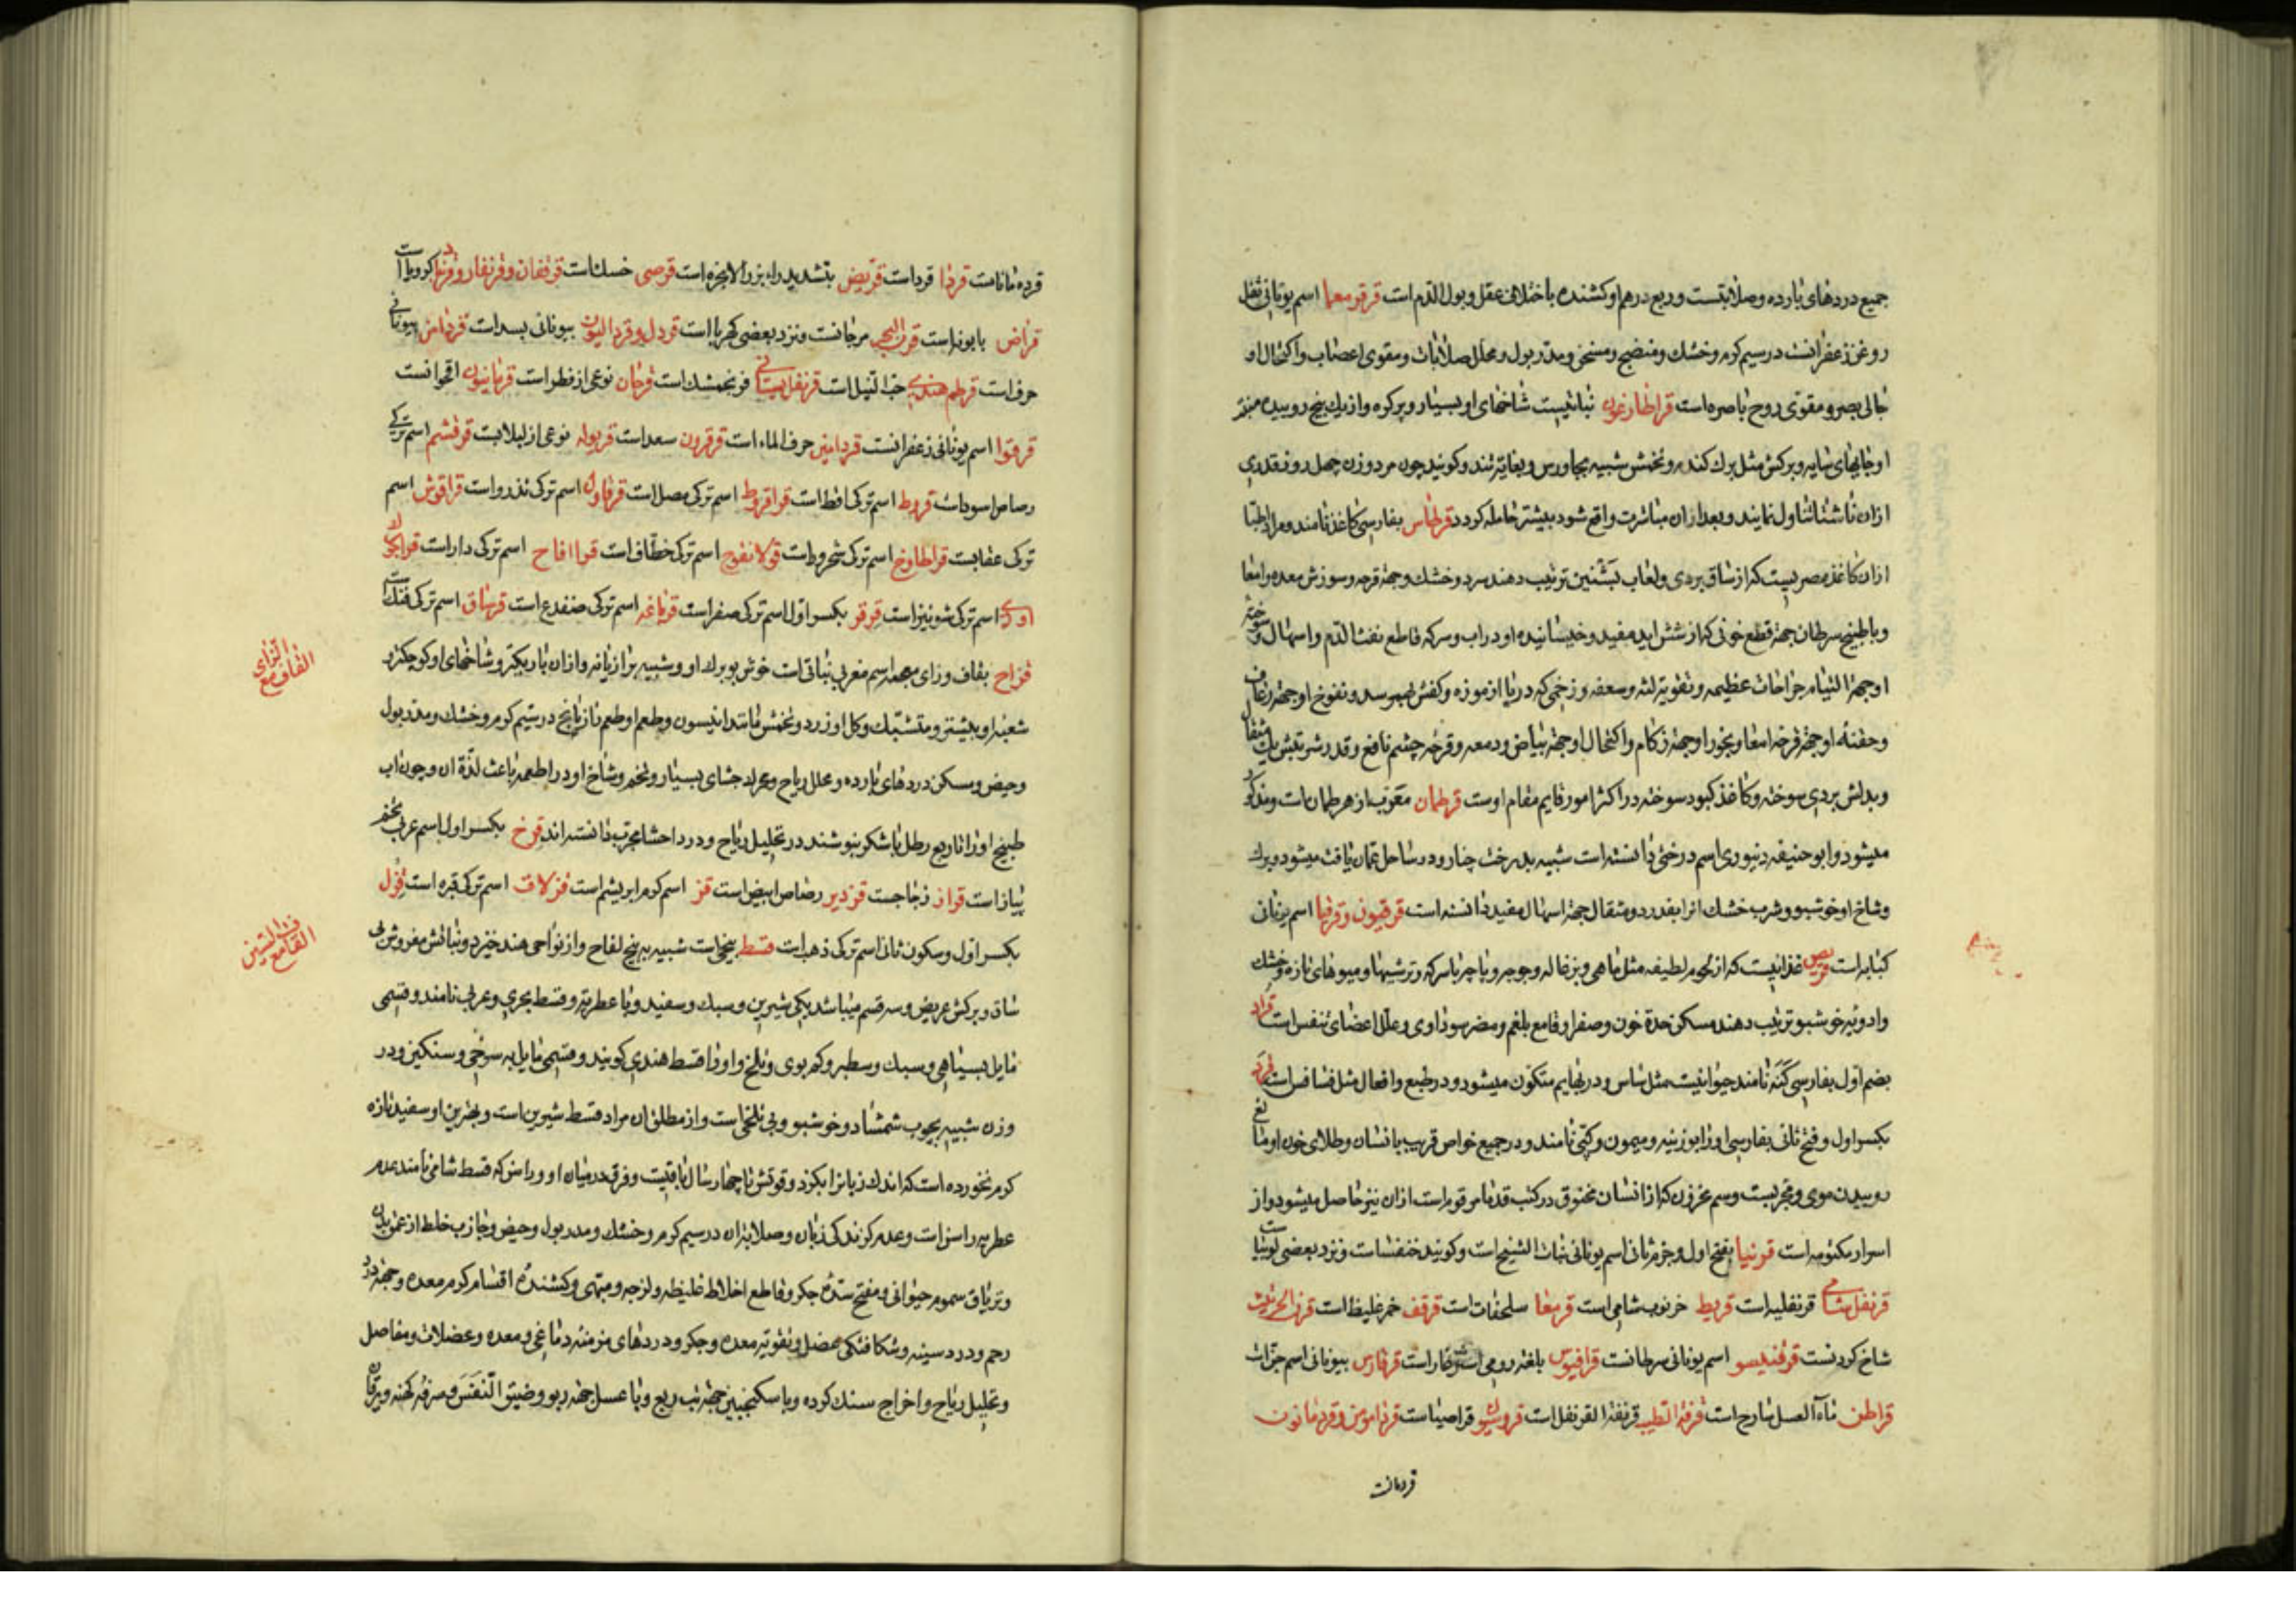 جمیع دردهای بارده و صلابتست و ربع درهم او کشنده باختلاف عقل و بول الدم است قرقومعما اسم یونانی ثفل
روغن زعفرانست در سیم کرم و خشك و منضج و مسخن و مدر بول و محلل صلابات و مقوی اعصاب و اکتحال او
جالی بصر و مقوی روح باصره است قراطارغون نباتیست شاخهای او بسیار و پر کره و از یك بیخ روییده منبت
او جایهای سایه و برکش مثل برك کندم و تخمش شبیه بجاورس و بغایة تند و کویند چون مرد و زن چهل روز قدری
ازان ناشتا تناول نمایند و بعد ازان مباشرت واقع شود بیشتر حامله کردد قرطاس بفارسی کاغذ نامند و مراد اطبا
ازان کاغذ مصریست که از ساق بردی و لعاب بشنین ترتیب دهند سرد و خشك و جهة قرحه و سوزش معده و امعا
و با طبیخ سرطان جهة قطع خونی که از شش اید مفید و خیسانیده او در اب و سرکه قاطع نفث الدم و اسهال و سوخته
او جهة التیام جراحات عظیمه و تقویة لثه و سعفه و زخمی که در پا از موزه و کفش بهم رسد و نفوخ او جهة رعاف
و حقنه او جهة قرحه امعا و بخور او جهة زکام و اکتحال او جهة بیاض و دمعه و قرحه چشم نافع و قدر شربتش یك مثقال
و بدلش بردی سوخته و کاغذ کبود سوخته در اکثر امور قایم مقام اوست قرطمان معرب از هرطمان است و مذکور
میشود و ابو حنیفه دینوری اسم درختی دانسته است شبیه بدرخت چنار و در ساحل عمان یافت میشود و برك
و شاخ او خوشبو و شرب خشك انرا بقدر دو مثقال جهة اسهال مفید دانسته است قرقیون و قرفیا اسم یونانی
کبابه است قریص غذائیست که از لحوم لطیفه مثل ماهی و بزغاله و جوجه و پاچه با سرکه و ترشیها و میوهای تازه و خشك
و ادویه خوشبو ترتیب دهند مسکن حدة خون و صفرا و قامع بلغم و مضر سوداوی و علل اعضای تنفس است قراد
بضم اول بفارسی کنه نامند حیوانیست مثل ساس و در بهایم متکون میشود و در طبع و افعال مثل فسافس است قرد
بکسر اول و فتح ثانی بفارسی او را بوزینه و میمون و کپی نامند و در جمیع خواص قریب بانسان و طلای خون او مانع
روییدن موی و مجربست و سم مخزون که از انسان مخنوق در کتب قدما مرقوم است ازان نیز حاصل میشود و از
اسرار مکتومه است قرنیا بفتح اول و جزم ثانی اسم یونانی نبات الشیح است و کویند خنفسا است و نزد بعضی لوبیا است
قرنفل شامی قرنفلیه است قریط خرنوب شامی است قرمعا سلحفات است قرقف خمر غلیظ است قرن الحریش
شاخ کردنست قرفندیسو اسم یونانی سرطانست قرافیوس بلغة رومی است قرفارس بیونانی اسم جزات
قراطن ماء العسل ساده است قرفة الطیب قرفة القرنفل است قروسیون قراصیا است قردامومن و قردمانون
قردمانا
قرده مانا است قردا قرد است قریض بتشدید راء بزر الانجره است قرصی خسك است قرنفان و قرنفار و قرنباد کرویا است
قراض بابونه است قرن البحر مرجانست و نزد بعضی کهربا است قردل و قردالیون بیونانی بسد است قردامن بیونانی
حرف است قرطم هندی حب النیل است قرنفل بستانی فرنجمشك است قرحان نوعی از فطر است قرمانیون اقحوانست
قرقوا اسم یونانی زعفرانست قردامین حرف الماء است قرقرون سعد است قریوله نوعی از لبلابست قرقشم اسم ترکی
رصاص اسود است قروط اسم ترکی اقط است قراقروط اسم ترکی مصل است قرقاول اسم ترکی تذرو است قراقوش اسم
ترکی عقابست قراطاوخ اسم ترکی شحرور است قرلانفوج اسم ترکی خطاف است قرا اغاج اسم ترکی دار است قراجوك
اودی اسم ترکی شونیز است قرقر بکسر اول اسم ترکی صقر است قرباغه اسم ترکی ضفدع است قرساق اسم ترکی فنك است
قزاح بقاف و زای معجمه اسم مغربی نباتی است خوش بو برك او شبیه برازیانه و ازان باریکتر و شاخهای او کوچکتر و
شعبه او بیشتر و متشبك و کل او زرد و تخمش مانند انیسون و طعم او طعم نارنج در سیم کرم و خشك و مدر بول
و حیض و مسکن دردهای بارده و محلل ریاح و محرك جشای بسیار و تخم و شاخ او در اطعمه باعث لذة ان و چون اب
طبیخ او را تا ربع رطل با شکر بنوشند در تحلیل ریاح و درد احشا مجرب دانسته اند قزح بکسر اول اسم عربی تخم
پیاز است قزاز زجاجست قزدیر رصاص ابیض است قز اسم کرم ابریشم است قزلاق اسم ترکی قبره است قزل
بکسر اول و سکون ثانی اسم ترکی ذهب است قسط بیخی است شبیه به بیخ لفاح و از نواحی هند خیزد و نباتش مفروش بی
ساق و برکش عریض و سه قسم میباشد یکی شیرین و سبك و سفید و با عطریة و قسط بحری و عربی نامند و قسمی
مایل بسیاهی و سبك و سطبر و کم بوی و تلخ و او را قسط هندی کویند و قسمی مایل به سرخی و سنکین و در
وزن شبیه بچوب شمشاد و خوشبو و بی تلخی است و از مطلق ان مراد قسط شیرین است و بهترین او سفید تازه
کرم نخورده است که اندك زبانرا بکزد و قوتش تا چهار سال باقیست و فرق در میان او و راسن که قسط شامی نامند عدم
عطریه راسن است و عدم کزندکی زبان و صلابة ان در سیم کرم و خشك و مدر بول و حیض و جاذب خلط از عمق بدن
و تریاق سموم حیوانی و مفتح سده جکر و قاطع اخلاط غلیظه و لزجه و مبهی و کشنده اقسام کرم معده و جهة درد
رحم و درد سینه و شکافتکی عضل و تقویة معده و جکر و دردهای مزمنه دماغی و معده و عضلات و مفاصل
و تحلیل ریاح و اخراج سنك کرده و با سکنجبین جهة تب ربع و با عسل جهة ربو و ضیق النفس و سرفه کهنه و یرقان
القاف مع الزای
القاف مع السین